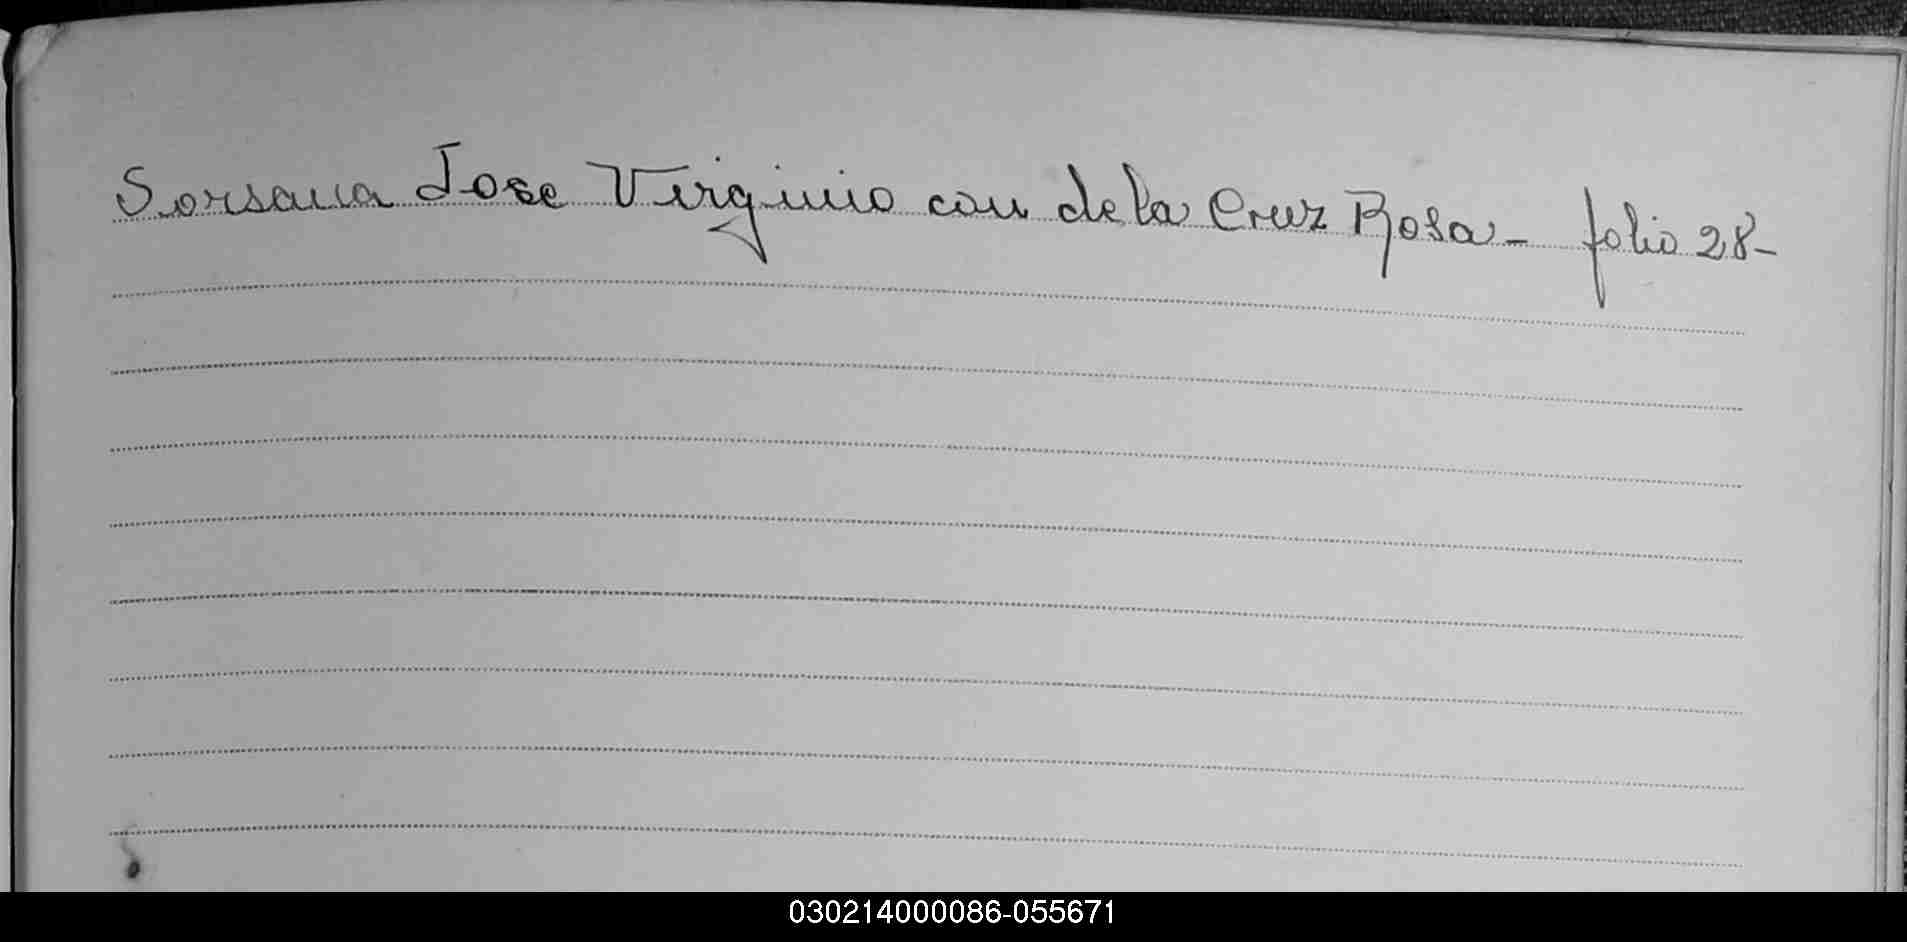 Sorsana Jose Virginio con de la Cruz Rosa - folio 28 -
030214000086-055671